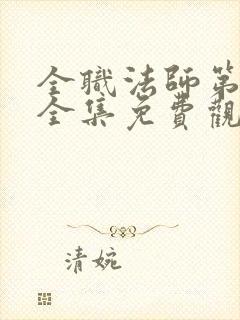 全職法師第
全集免費觀
清婉